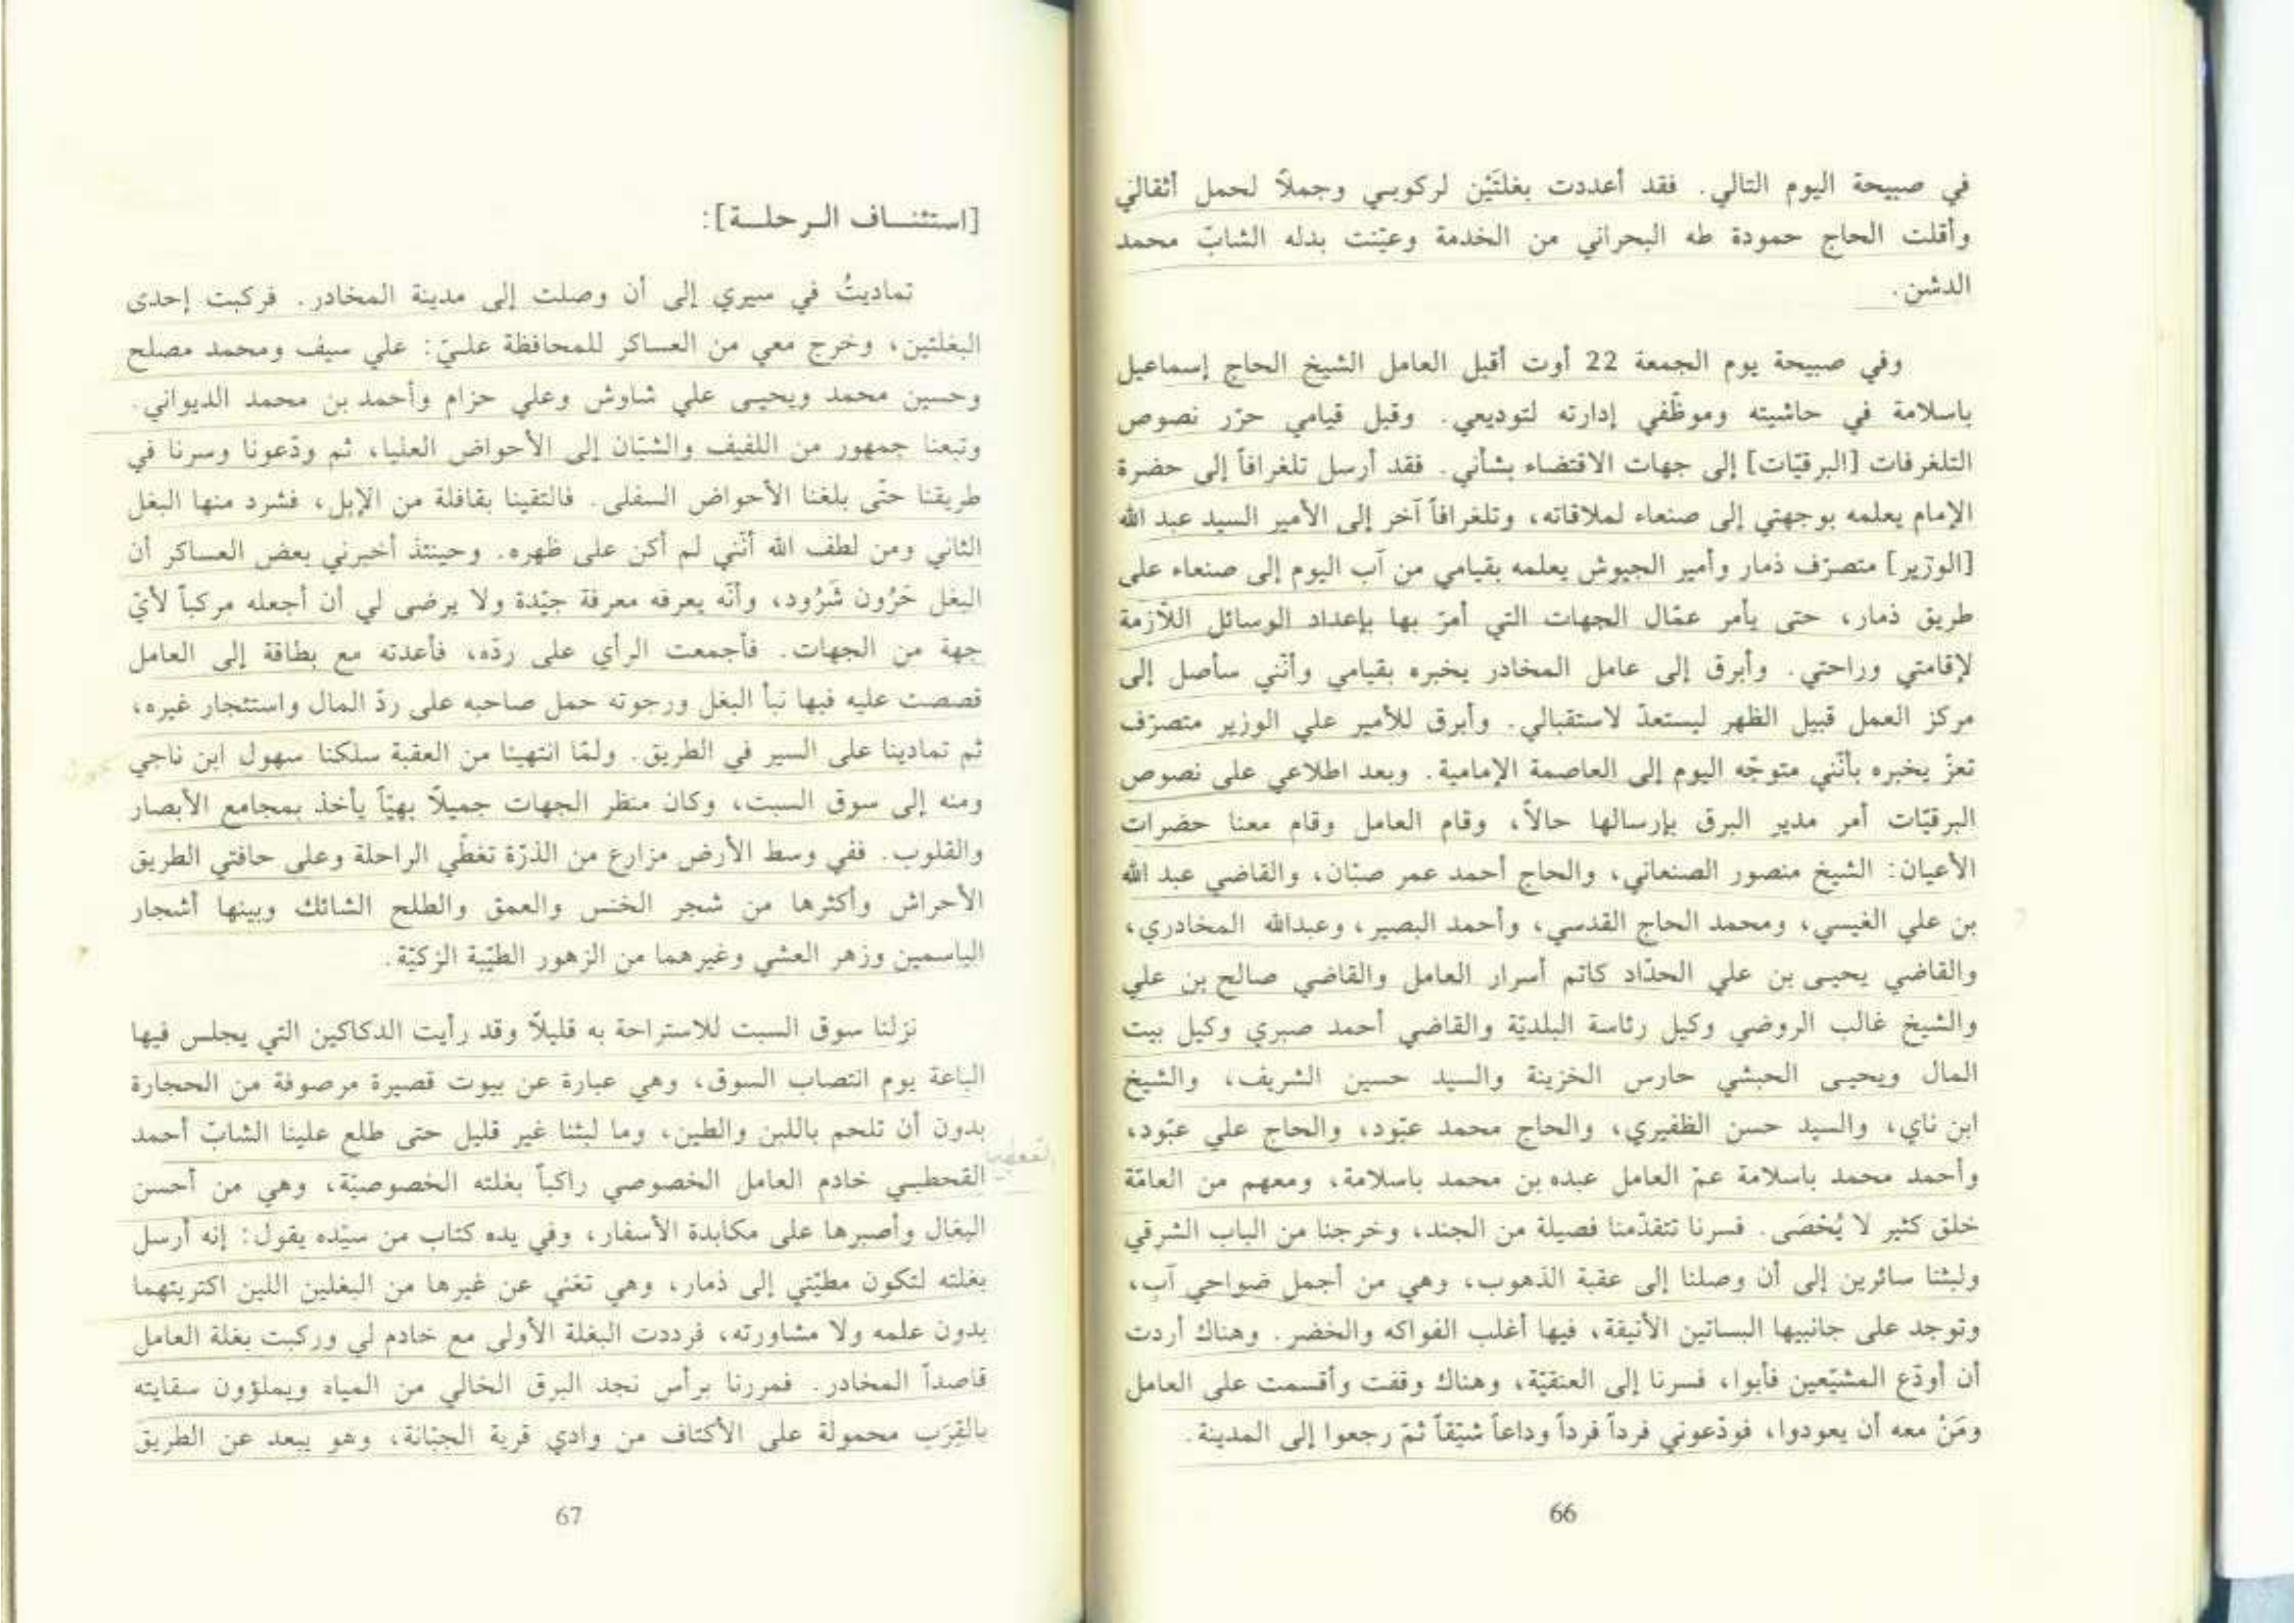 في صبيحة اليوم التالي. فقد أعددت بغلتَيْن لركوبي وجملاً لحمل أثقالي
وأقلت الحاج حمودة طه البحراني من الخدمة وعيّنت بدله الشابّ محمد
الدشن.
وفي صبيحة يوم الجمعة 22 أوت أقبل العامل الشيخ الحاج إسماعيل
باسلامة في حاشيته وموظّفي إدارته لتوديعي. وقبل قيامي حرّر نصوص
التلغرفات [البرقيّات] إلى جهات الاقتضاء بشأني. فقد أرسل تلغرافاً إلى حضرة
الإمام يعلمه بوجهتي إلى صنعاء لملاقاته، وتلغرافاً آخر إلى الأمير السيد عبد الله
[الوزير] متصرّف ذمار وأمير الجيوش يعلمه بقيامي من آب اليوم إلى صنعاء على
طريق ذمار، حتى يأمر عمّال الجهات التي أمرّ بها بإعداد الوسائل اللاّزمة
لإقامتي وراحتي. وأبرق إلى عامل المخادر يخبره بقيامي وأنّني سأصل إلى
مركز العمل قبيل الظهر ليستعدّ لاستقبالي. وأبرق للأمير علي الوزير متصرّف
تعزّ يخبره بأنّني متوجّه اليوم إلى العاصمة الإمامية. وبعد اطلاعي على نصوص
البرقيّات أمر مدير البرق بإرسالها حالاً، وقام العامل وقام معنا حضرات
الأعيان: الشيخ منصور الصنعاني، والحاج أحمد عمر صبّان، والقاضي عبد الله
بن علي الغيسي، ومحمد الحاج القدسي، وأحمد البصير، وعبدالله المخادري،
والقاضي يحيى بن علي الحدّاد كاتم أسرار العامل والقاضي صالح بن علي
والشيخ غالب الروضي وكيل رئاسة البلديّة والقاضي أحمد صبري وكيل بيت
المال ويحيى الحبشي حارس الخزينة والسيد حسين الشريف، والشيخ
ابن ناي، والسيد حسن الظفيري، والحاج محمد عبّود، والحاج علي عبّود،
وأحمد محمد باسلامة عمّ العامل عبده بن محمد باسلامة، ومعهم من العامّة
خلق كثير لا يُحْصَى. فسرنا تتقدّمنا فصيلة من الجند، وخرجنا من الباب الشرقي
ولبثنا سائرين إلى أن وصلنا إلى عقبة الذهوب، وهي من أجمل ضواحي آب،
وتوجد على جانبيها البساتين الأنيقة، فيها أغلب الفواكه والخضر. وهناك أردت
أن أودّع المشيّعين فأبوا، فسرنا إلى العنقيّة، وهناك وقفت وأقسمت على العامل
ومَنْ معه أن يعودوا، فودّعوني فرداً فرداً وداعاً شيّقاً ثمّ رجعوا إلى المدينة.
66
[استئنـاف الـرحلـة]:
تماديتُ في سيري إلى أن وصلت إلى مدينة المخادر. فركبت إحدى
البغلتين، وخرج معي من العساكر للمحافظة عليّ: علي سيف ومحمد مصلح
وحسين محمد ويحيى علي شاوش وعلي حزام وأحمد بن محمد الديواني.
وتبعنا جمهور من اللفيف والشبّان إلى الأحواض العليا، ثم ودّعونا وسرنا في
طريقنا حتّى بلغنا الأحواض السفلى. فالتقينا بقافلة من الإبل، فشرد منها البغل
الثاني ومن لطف الله أنّني لم أكن على ظهره. وحينئذ أخبرني بعض العساكر أن
البغل حَرُون شَرُود، وأنّه يعرفه معرفة جيّدة ولا يرضى لي أن أجعله مركباً لأيّ
جهة من الجهات. فأجمعت الرأي على ردّه، فأعدته مع بطاقة إلى العامل
قصصت عليه فيها نبأ البغل ورجوته حمل صاحبه على ردّ المال واستئجار غيره،
ثم تمادينا على السير في الطريق. ولمّا انتهينا من العقبة سلكنا سهول ابن ناجي
ومنه إلى سوق السبت، وكان منظر الجهات جميلاً بهيّاً يأخذ بمجامع الأبصار
والقلوب. ففي وسط الأرض مزارع من الذرّة تغطّي الراحلة وعلى حافتي الطريق
الأحراش وأكثرها من شجر الخنس والعمق والطلح الشائك وبينها أشجار
الياسمين وزهر العشي وغيرهما من الزهور الطيّبة الزكيّة.
نزلنا سوق السبت للاستراحة به قليلاً وقد رأيت الدكاكين التي يجلس فيها
الباعة يوم انتصاب السوق، وهي عبارة عن بيوت قصيرة مرصوفة من الحجارة
بدون أن تلحم باللبن والطين، وما لبثنا غير قليل حتى طلع علينا الشابّ أحمد
القحطبي خادم العامل الخصوصي راكباً بغلته الخصوصيّة، وهي من أحسن
البغال وأصبرها على مكابدة الأسفار، وفي يده كتاب من سيّده يقول: إنه أرسل
بغلته لتكون مطيّتي إلى ذمار، وهي تغني عن غيرها من البغلين اللين اكتريتهما
بدون علمه ولا مشاورته، فرددت البغلة الأولى مع خادم لي وركبت بغلة العامل
قاصداً المخادر. فمررنا برأس نجد البرق الخالي من المياه ويملؤون سقايته
بالقِرَب محمولة على الأكتاف من وادي قرية الجبّانة، وهو يبعد عن الطريق
67